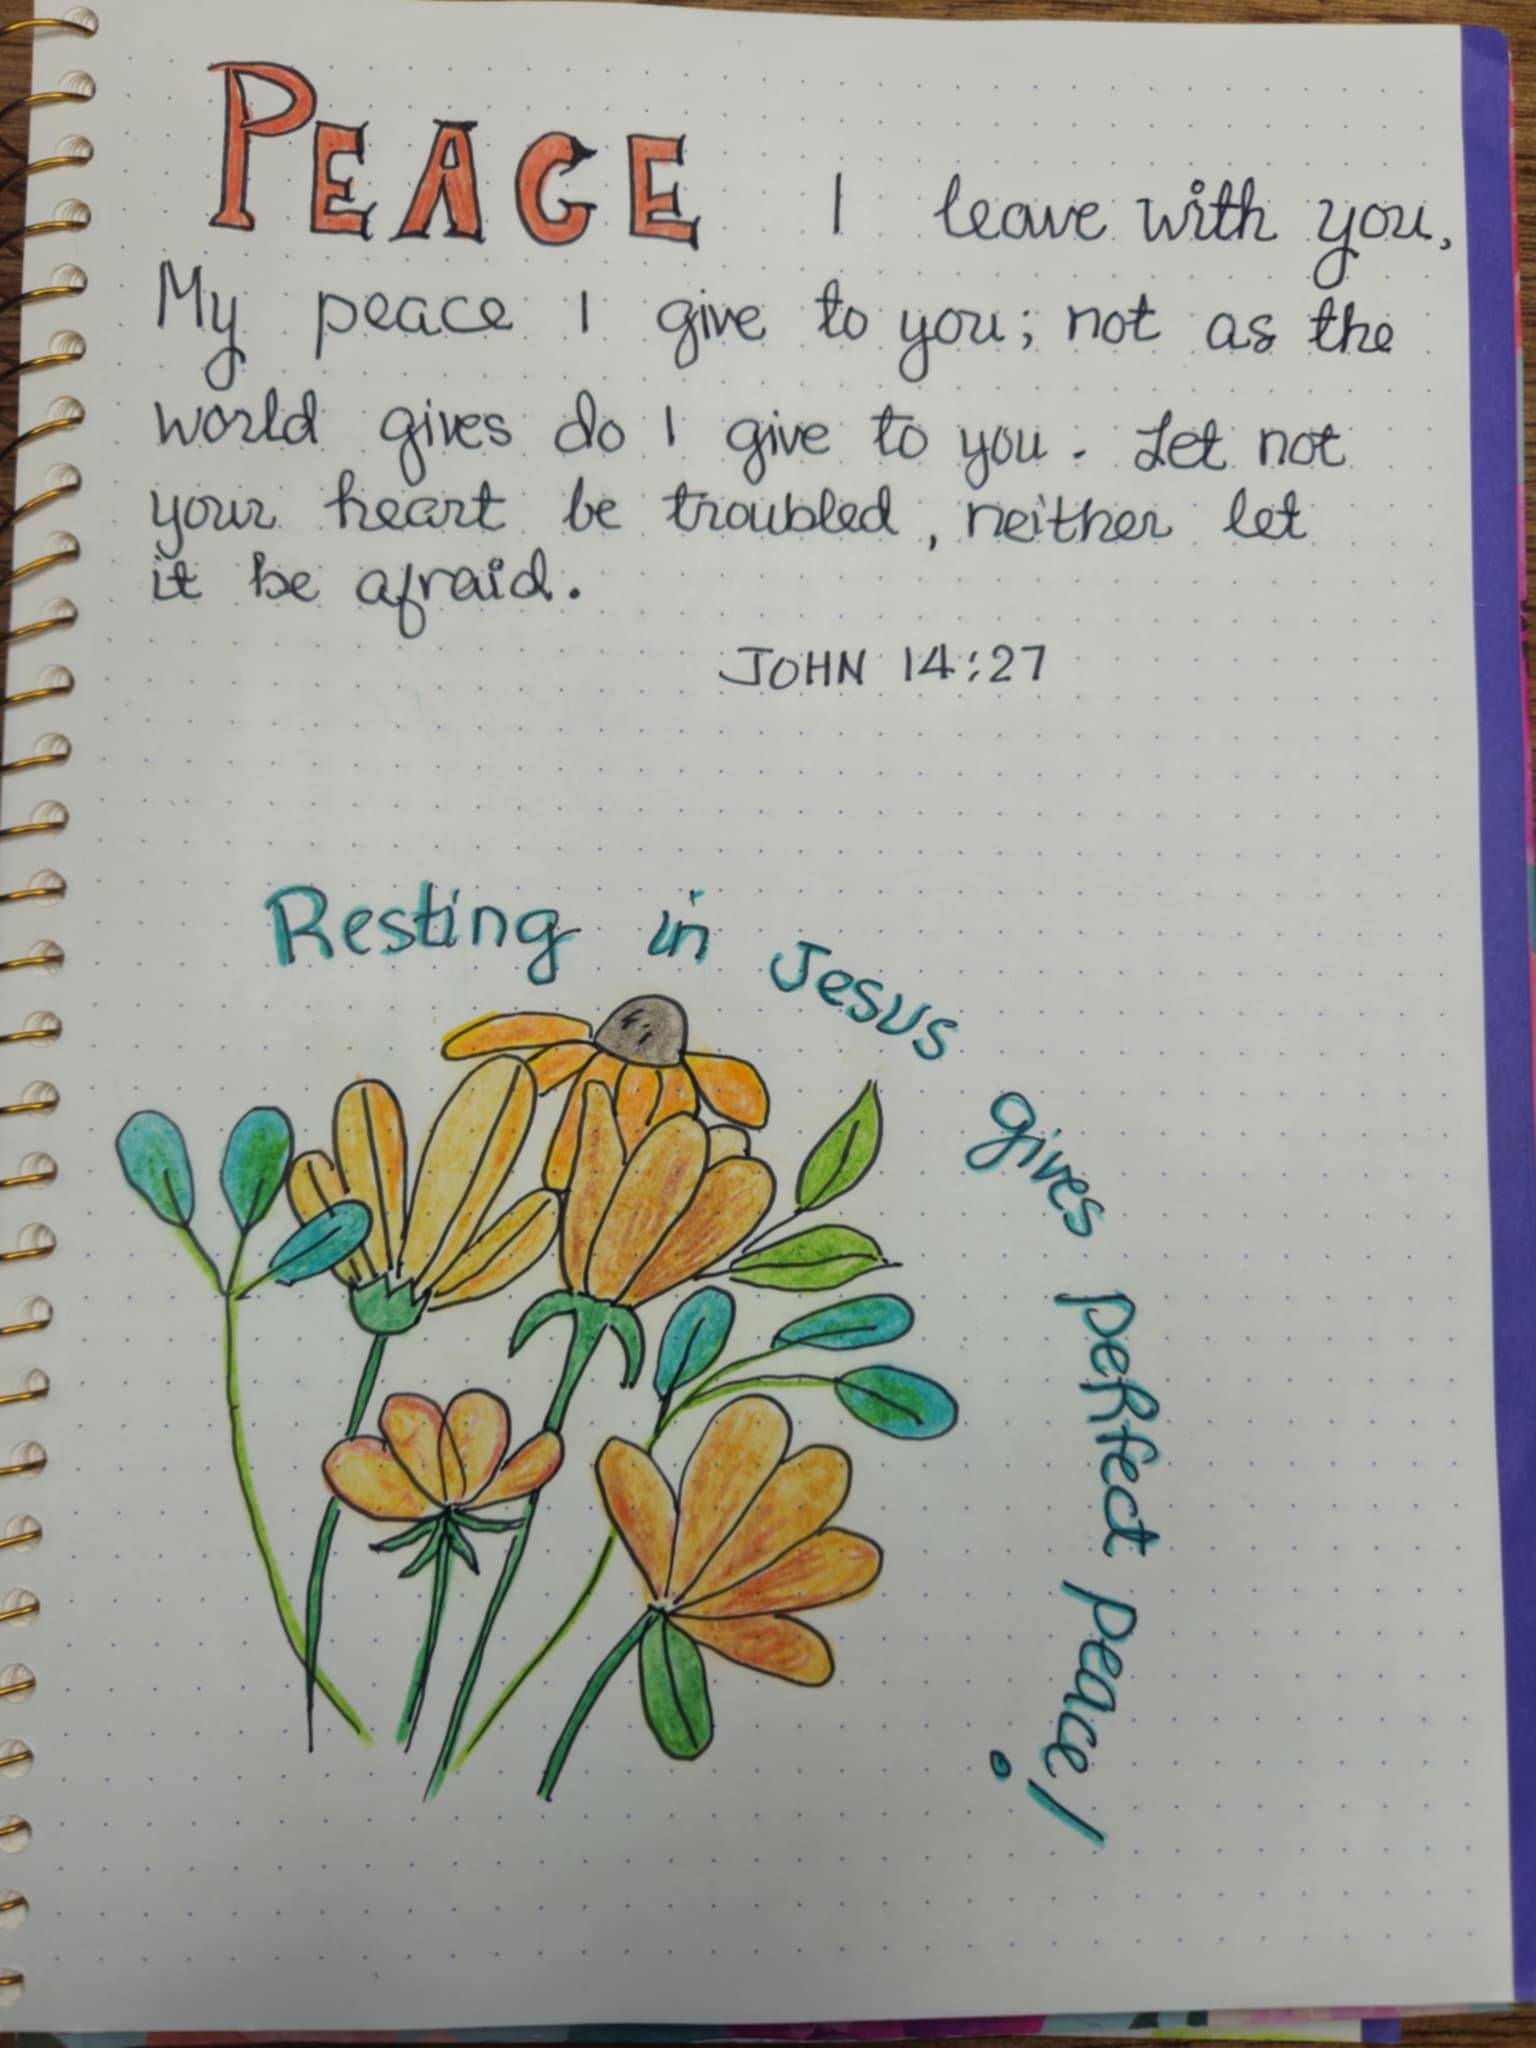 PEACE I leave with you,
My peace I give to you; not as the
world gives do I give to you. Let not
your heart be troubled, neither let
it be afraid.
JOHN 14:27
Resting in Jesus gives perfect peace!